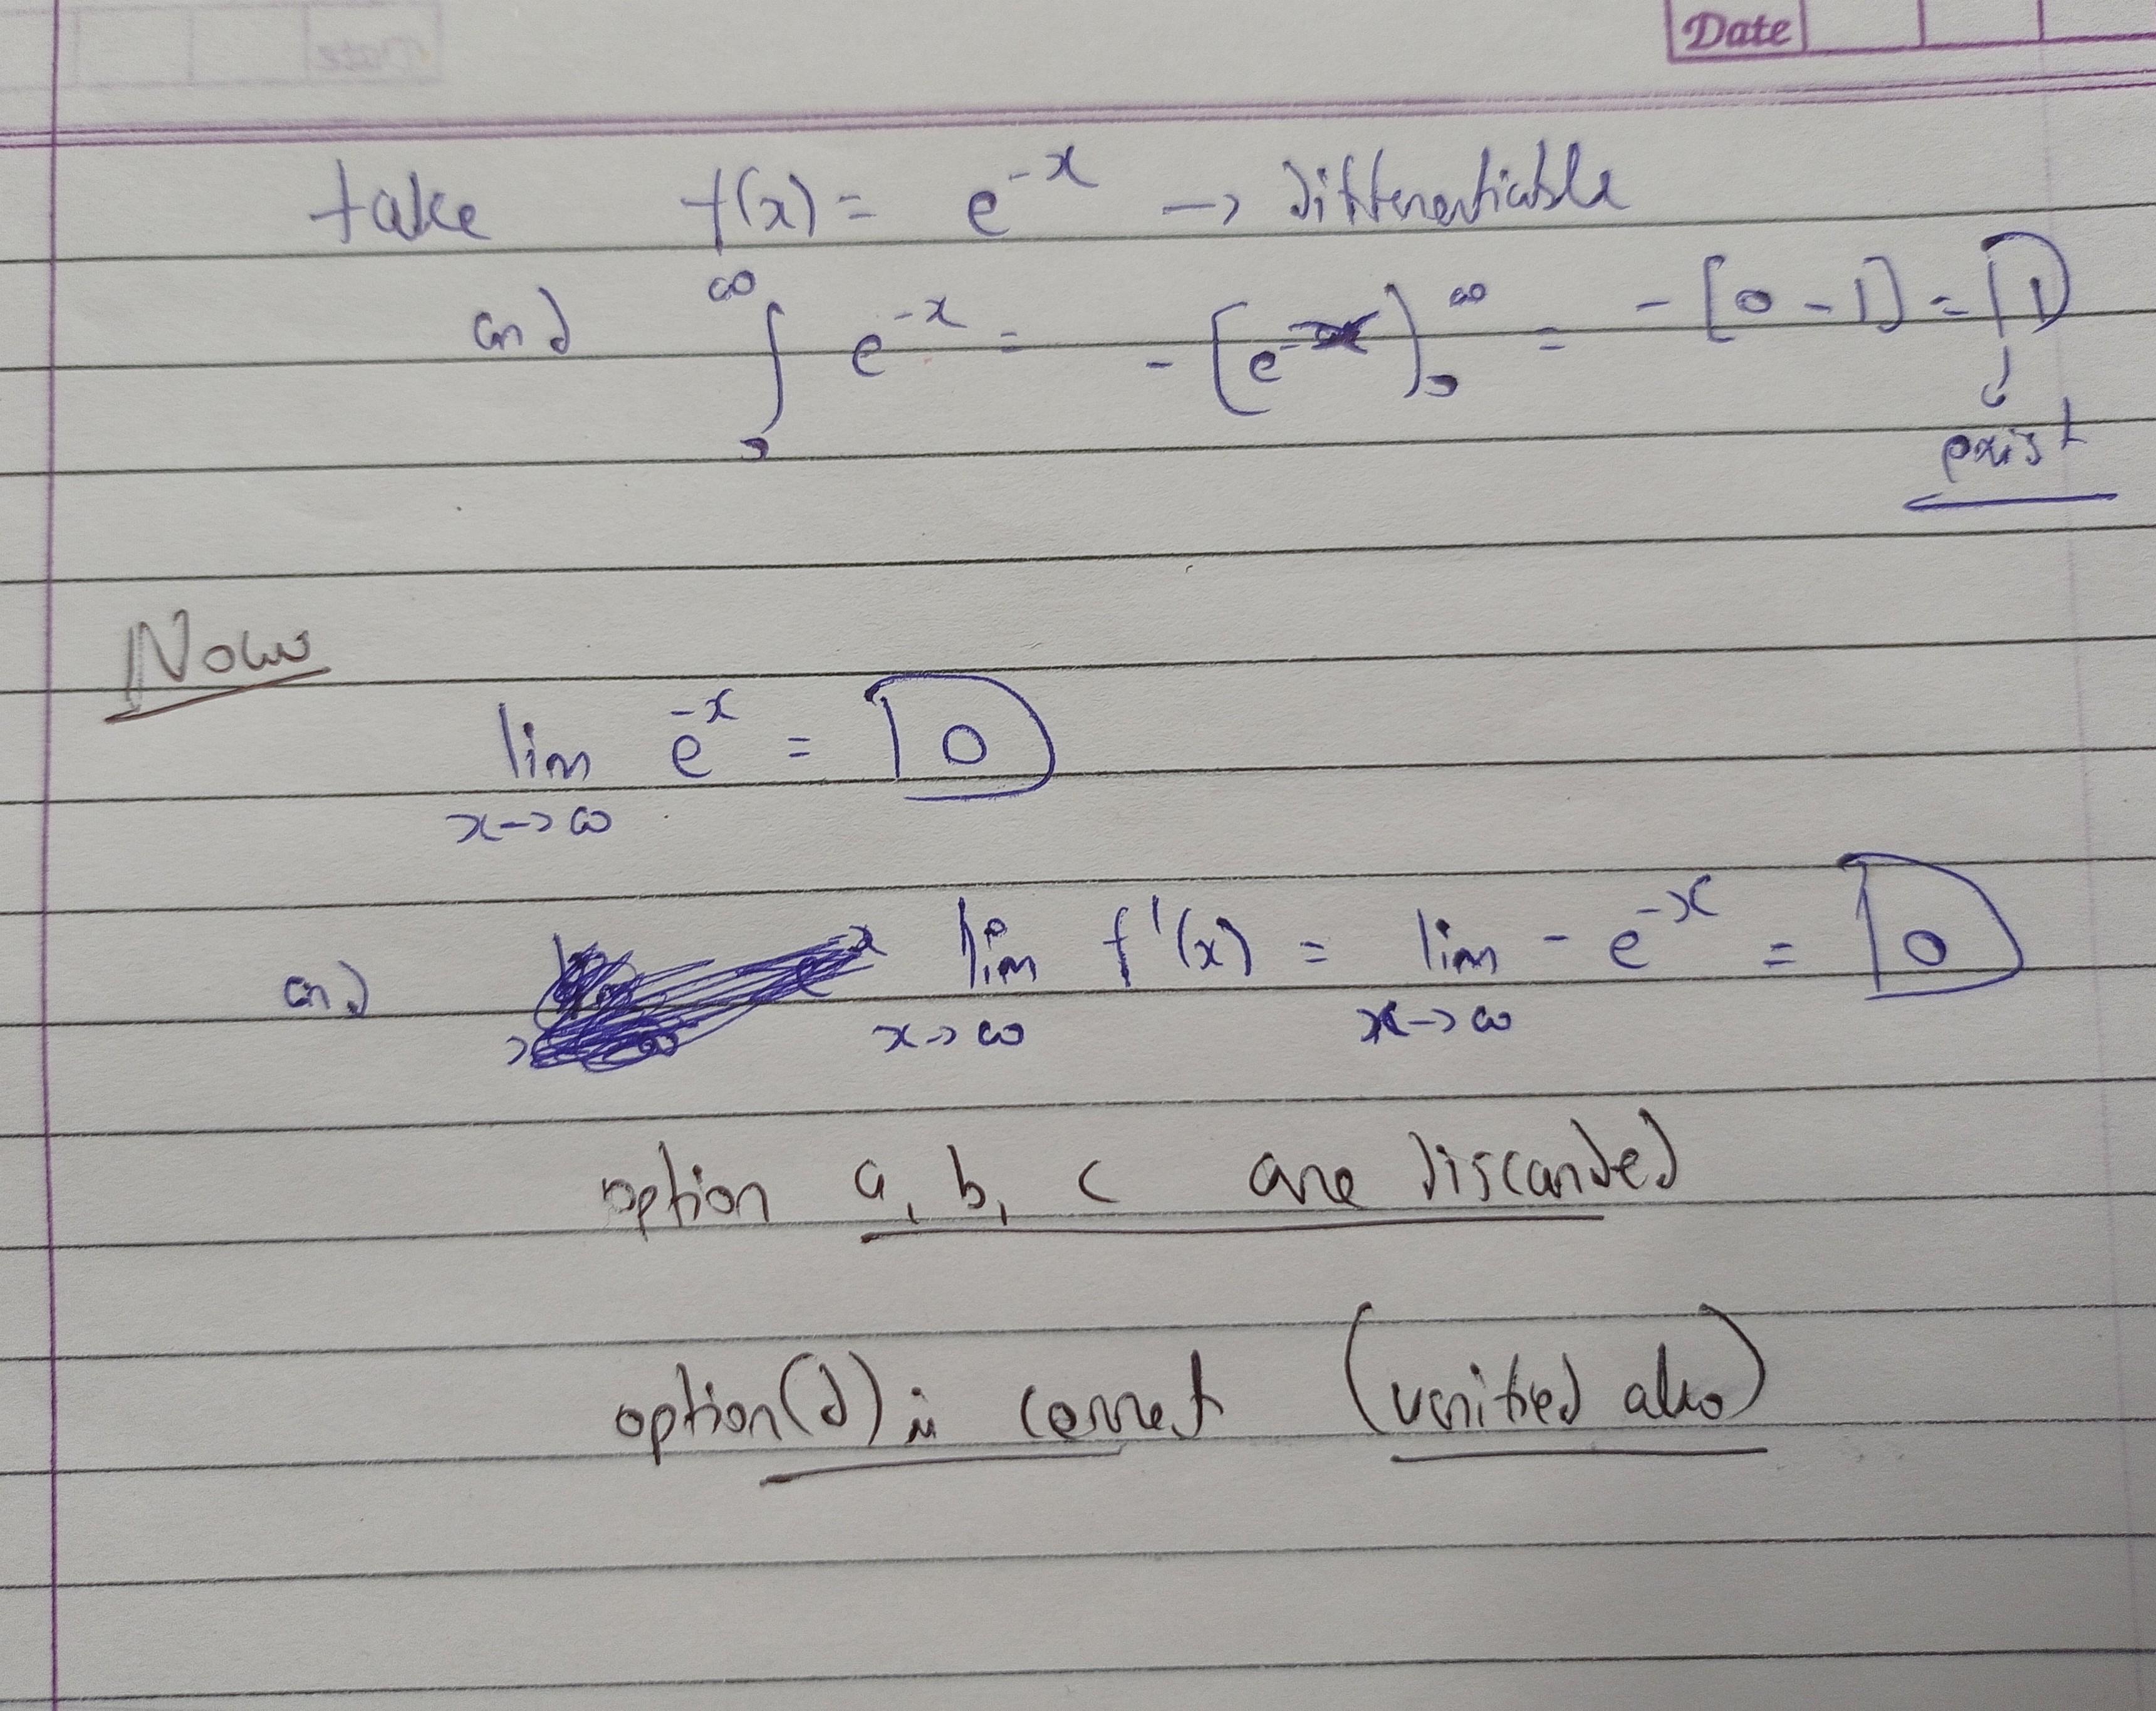 Date
take f(x) = e^{-x} → differentiable
and ∫_0^∞ e^{-x} = -[e^{-x}]_0^∞ = -[0 - 1] = 1
↓
exist
Now
lim_{x→∞} e^{-x} = 0
and lim_{x→∞} f'(x) = lim_{x→∞} -e^{-x} = 0
option a, b, c are discarded
option (d) is correct (verified also)